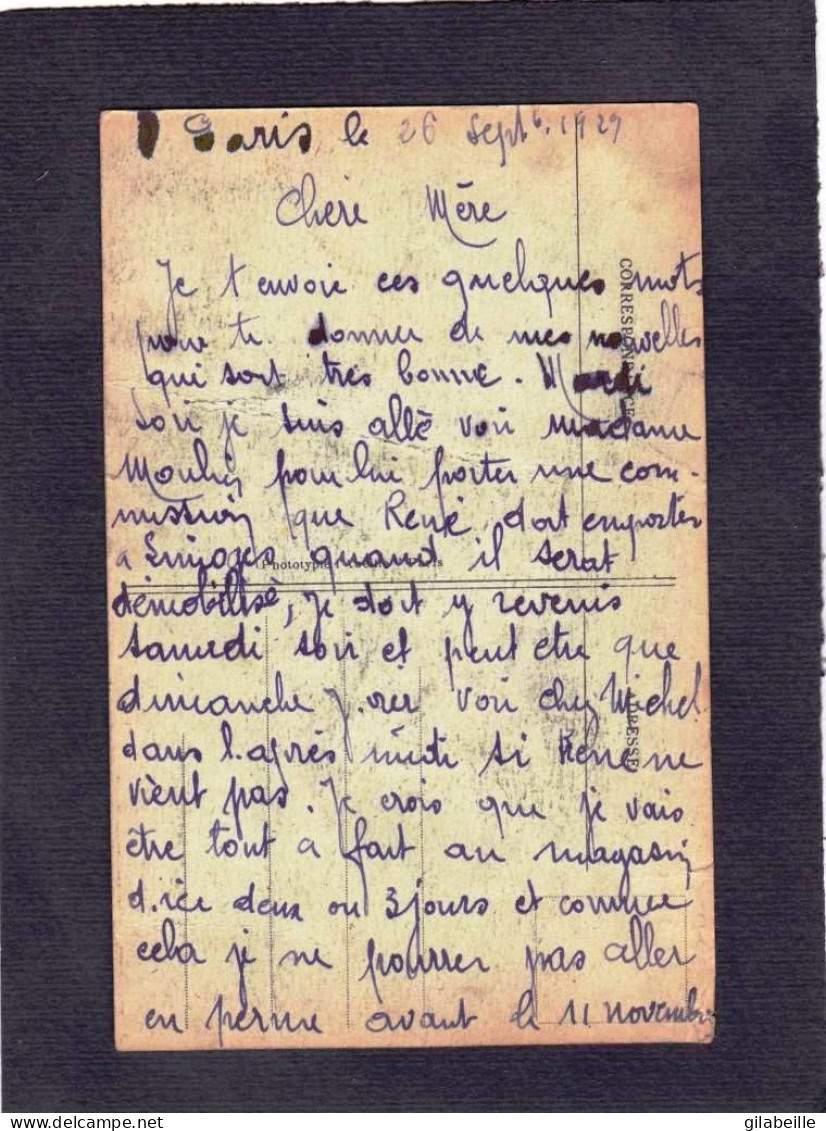 Paris le 26 Sept b. 1929
Chère Mère
Je t envoie ces quelques mots
pour te donner de mes nouvelles
qui sont tres bonne. Mardi
soir je suis allè voir madame
Moulin pour lui porter une com-
mission que Renè doit emporter
a Limoges quand il serat
démobilisè, je doit y revenir
samedi soir et peut etre que
dimanche j.irer voir chez Michel
dans l.après midi si Rene ne
vient pas. Je crois que je vais
être tout a fait au magasin
d.ici deux ou 3 jours et comme
cela je ne pourrer pas aller
en perme avant le 11 novembre
CORRESPONDANCE
Phototypie
ADRESSE
delcampe.net
gilabeille